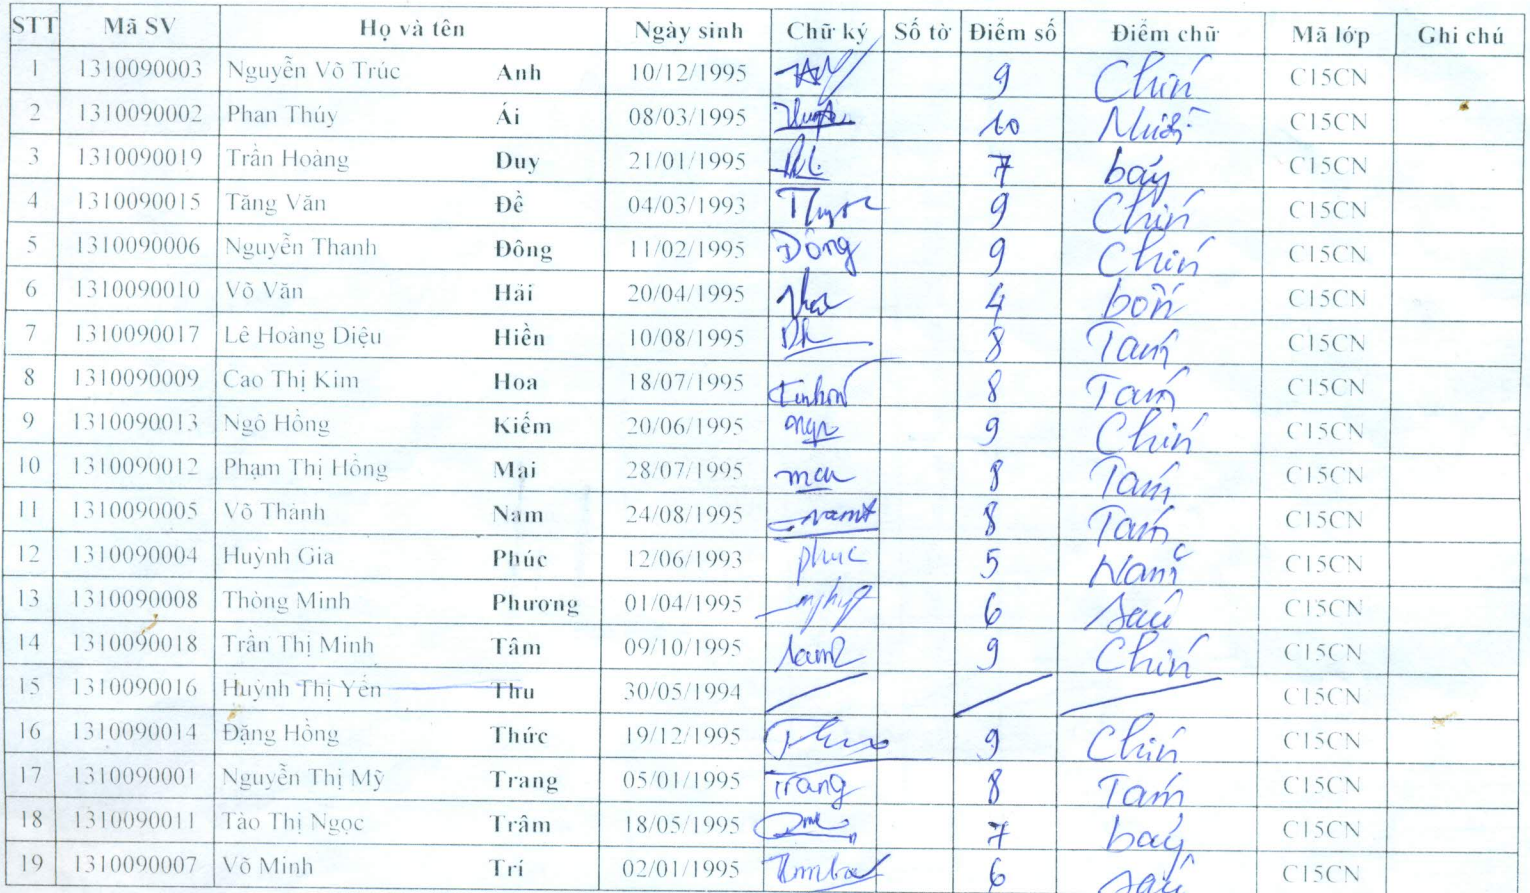 STT Mã SV Họ và tên Ngày sinh Chữ ký Số tờ Điểm số Điểm chữ Mã lớp Ghi chú
1 1310090003 Nguyễn Võ Trúc Anh 10/12/1995 9 Chín C15CN
2 1310090002 Phan Thúy Ái 08/03/1995 10 Mười C15CN
3 1310090019 Trần Hoàng Duy 21/01/1995 7 bảy C15CN
4 1310090015 Tăng Văn Đề 04/03/1993 9 Chín C15CN
5 1310090006 Nguyễn Thanh Đông 11/02/1995 Đông 9 Chín C15CN
6 1310090010 Võ Văn Hải 20/04/1995 4 bốn C15CN
7 1310090017 Lê Hoàng Diệu Hiền 10/08/1995 8 Tám C15CN
8 1310090009 Cao Thị Kim Hoa 18/07/1995 8 Tám C15CN
9 1310090013 Ngô Hồng Kiếm 20/06/1995 9 Chín C15CN
10 1310090012 Phạm Thị Hồng Mai 28/07/1995 8 Tám C15CN
11 1310090005 Võ Thành Nam 24/08/1995 8 Tám C15CN
12 1310090004 Huỳnh Gia Phúc 12/06/1993 phuc 5 Năm C15CN
13 1310090008 Thòng Minh Phương 01/04/1995 6 Sáu C15CN
14 1310090018 Trần Thị Minh Tâm 09/10/1995 9 Chín C15CN
15 1310090016 Huỳnh Thị Yến Thu 30/05/1994 C15CN
16 1310090014 Đặng Hồng Thức 19/12/1995 9 Chín C15CN
17 1310090001 Nguyễn Thị Mỹ Trang 05/01/1995 Trang 8 Tám C15CN
18 1310090011 Tào Thị Ngọc Trâm 18/05/1995 7 bảy C15CN
19 1310090007 Võ Minh Trí 02/01/1995 6 sáu C15CN